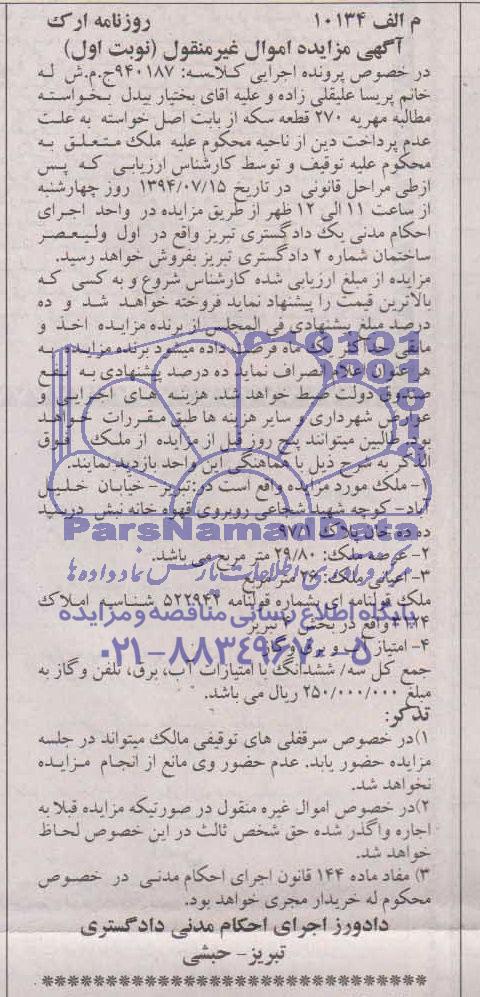 م الف ۱۰۱۳۴ روزنامه ارک
آگهی مزایده اموال غیرمنقول (نوبت اول)
در خصوص پرونده اجرایی کلاسه: ۹۴۰۱۸۷ج.م.ش له
خانم پریسا علیقلی زاده و علیه اقای بختیار بیدل بخواسته
مطالبه مهریه ۲۷۰ قطعه سکه از بابت اصل خواسته به علت
عدم پرداخت دین از ناحیه محکوم علیه ملک متعلق به
محکوم علیه توقیف و توسط کارشناس ارزیابی که پس
ازطی مراحل قانونی در تاریخ ۱۳۹۴/۰۷/۱۵ روز چهارشنبه
از ساعت ۱۱ الی ۱۲ ظهر از طریق مزایده در واحد اجرای
احکام مدنی یک دادگستری تبریز واقع در اول ولیعصر
ساختمان شماره ۲ دادگستری تبریز بفروش خواهد رسید.
مزایده از مبلغ ارزیابی شده کارشناس شروع و به کسی که
بالاترین قیمت را پیشنهاد نماید فروخته خواهد شد و ده
درصد مبلغ پیشنهادی فی المجلس از برنده مزایده اخذ و
مابقی حداکثر یک ماه فرصت داده میشود برنده مزایده به
هر عنوان اعلام انصراف نماید ده درصد پیشنهادی به نفع
صندوق دولت ضبط خواهد شد. هزینه های اجرایی و
عوارض شهرداری و سایر هزینه ها طبق مقررات خواهد
بود. طالبین میتوانند پنج روز قبل از مزایده از ملک فوق
الذکر به شرح ذیل با هماهنگی این واحد بازدید نمایند.
۱- ملک مورد مزایده واقع است در: تبریز- خیابان خلیل
آباد- کوچه شهید شجاعی روبروی قهوه خانه نبش
پلاک ۹۷۵۱
۲- عرصه ملک: ۲۹/۸۰ متر مربع می باشد.
۳- اعیانی ملک: ۲۶ متر مربع
ملک قولنامه ای بشماره قولنامه ۵۲۲۹۴۲ شناسه املاک
واقع در بخش تبریز
۴- امتیاز آب و برق و گاز
جمع کل سه/ ششدانگ با امتیازات آب، برق، تلفن و گاز به
مبلغ ۲۵۰/۰۰۰/۰۰۰ ریال می باشد.
تذکر:
۱)در خصوص سرقفلی های توقیفی مالک میتواند در جلسه
مزایده حضور یابد. عدم حضور وی مانع از انجام مزایده
نخواهد شد.
۲)در خصوص اموال غیره منقول در صورتیکه مزایده قبلا به
اجاره واگذر شده حق شخص ثالث در این خصوص لحاظ
خواهد شد.
۳) مفاد ماده ۱۴۴ قانون اجرای احکام مدنی در خصوص
محکوم له خریدار مجری خواهد بود.
دادورز اجرای احکام مدنی دادگستری
تبریز- حبشی
ParsNamadData
مرکز فرآوری اطلاعات پارس نماد داده ها
پایگاه اطلاع رسانی مناقصه و مزایده
۰۲۱-۸۸۳۴۹۶۷۰-۵